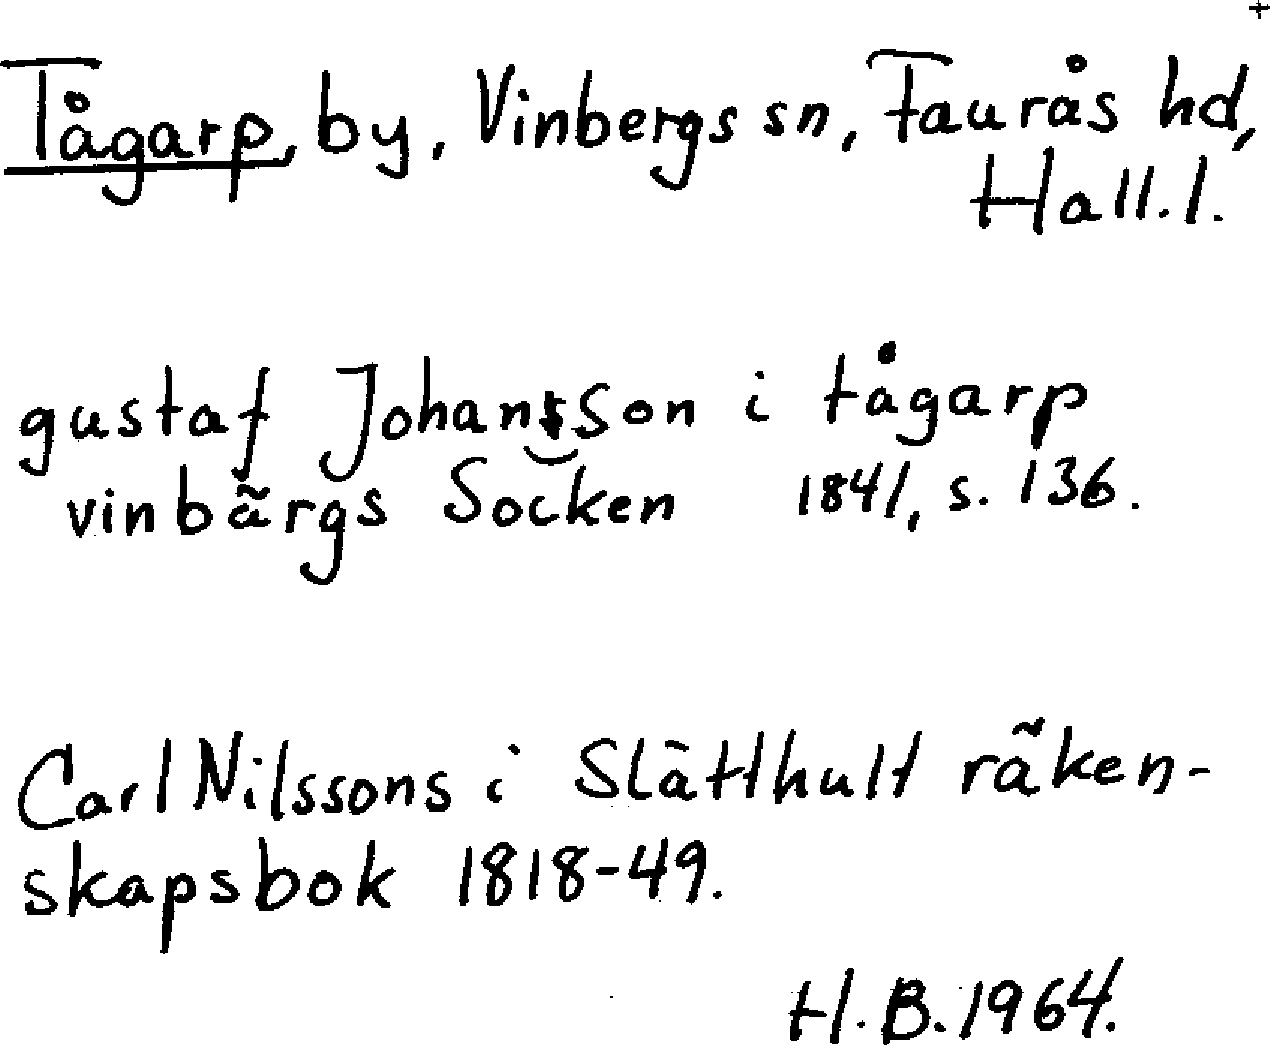 +
Tågarp, by, Vinbergs sn, Faurås hd,
Hall. l.
gustaf Johansson i tågarp
vinbärgs Socken 1841, s. 136.
Carl Nilssons i Slätthult räken-
skapsbok 1818-49.
H. B. 1964.